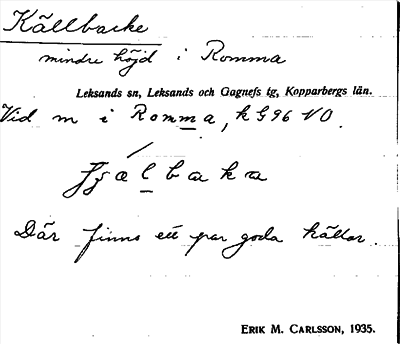 Källbacke
mindre höjd i Romma
Leksands sn, Leksands och Gagnefs tg, Kopparbergs län.
Vid m i Romma, k G96 VO.
fjælbaka
Där finns ett par goda källor.
ERIK M. CARLSSON, 1935.